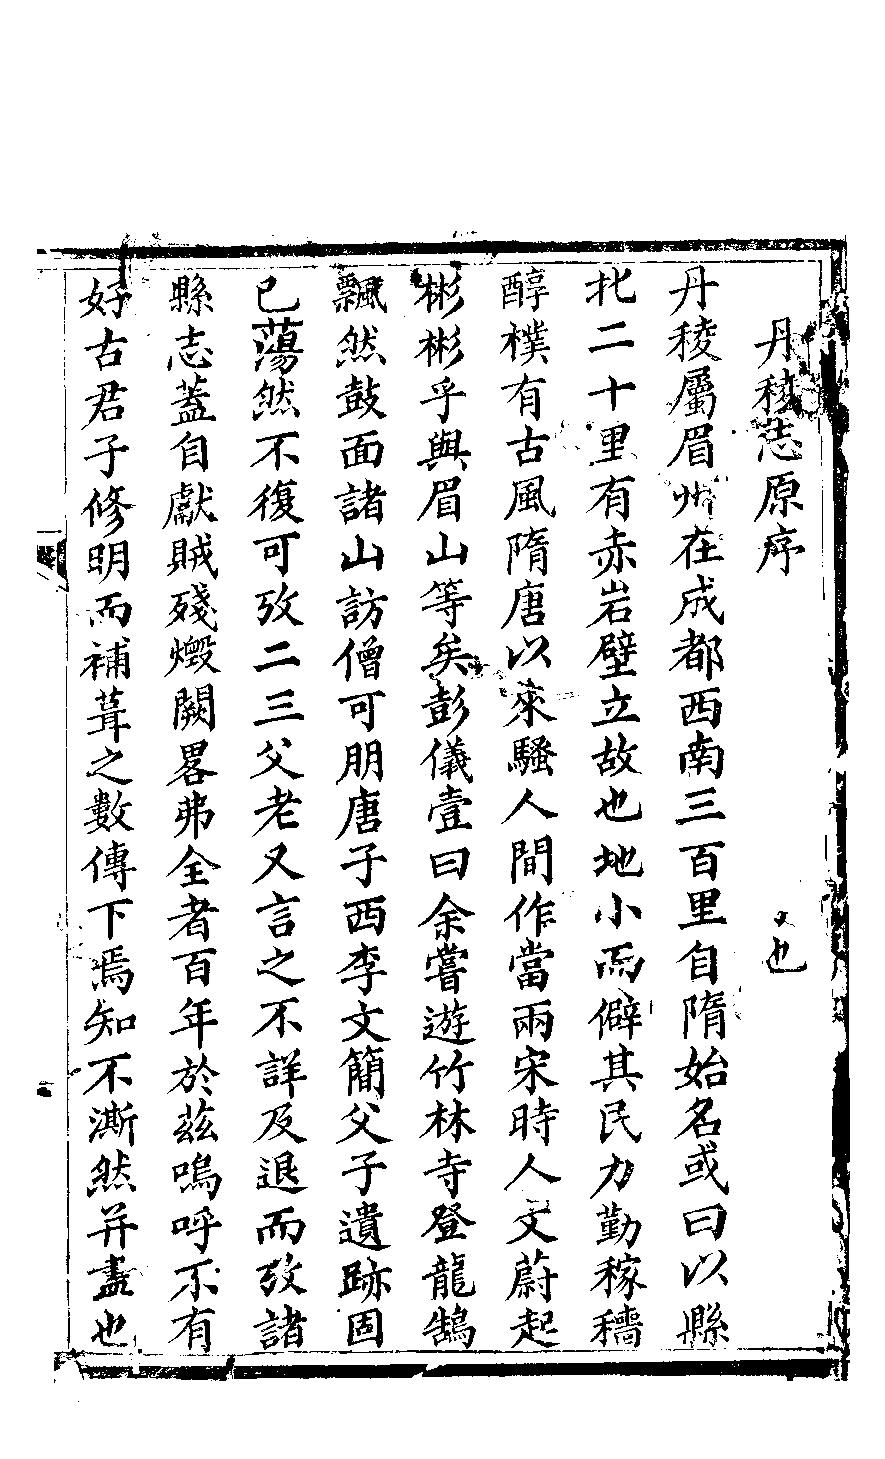 丹稜志原序
也
丹稜屬眉州在成都西南三百里自隋始名或曰以縣
北二十里有赤岩壁立故也地小而僻其民力勤稼穡
醇樸有古風隋唐以來騷人間作當兩宋時人文蔚起
彬彬乎與眉山等矣彭儀壹曰余嘗遊竹林寺登龍鵠
飄然鼓面諸山訪僧可朋唐子西李文簡父子遺跡固
已蕩然不復可攷二三父老又言之不詳及退而攷諸
縣志蓋自獻賊殘燬闕畧弗全者百年於茲嗚呼不有
好古君子修明而補葺之數傳下焉知不澌然并盡也